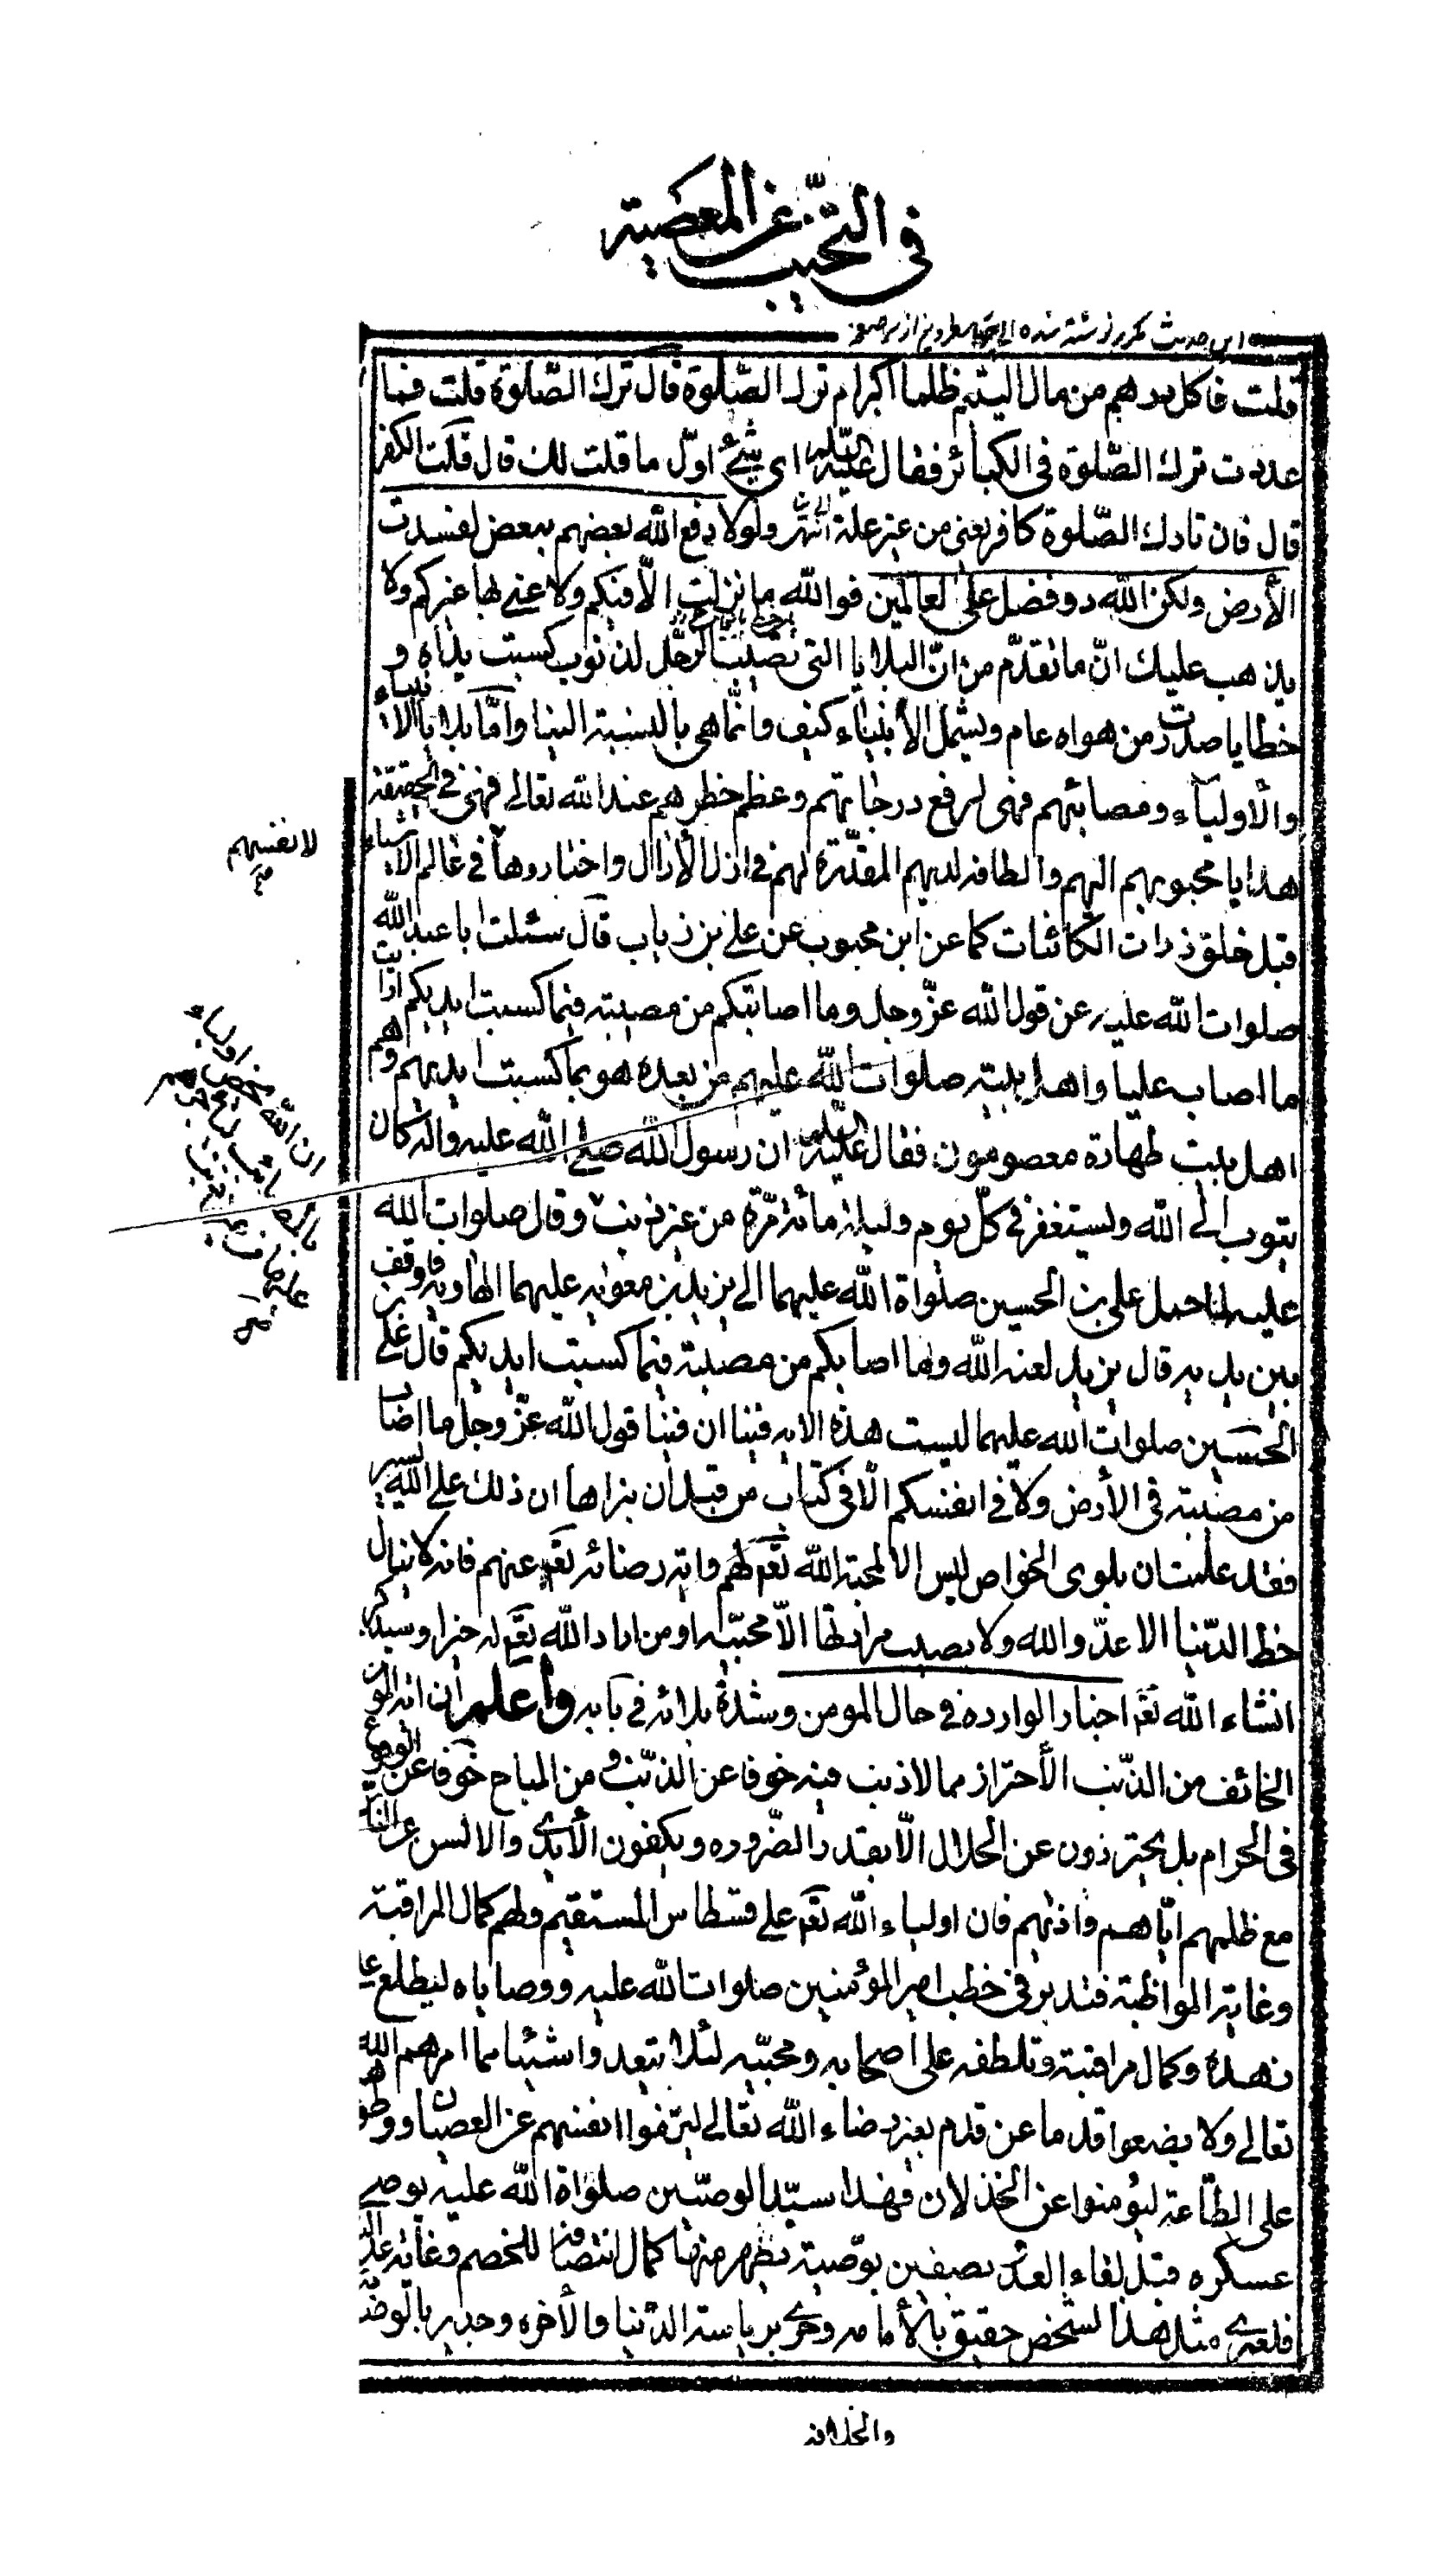 فى التحبيب عن المعصية
اين حديث مكرر نوشته شده الى سطر از سر صفحه
قلت فاكل درهم من مال اليتيم ظلما اكبر ام ترك الصّلوة قال ترك الصّلوة قلت فما
عددت ترك الصّلوة فى الكبائر فقال عليه السّلم اى شئ اوّل ما قلت لك قال قلت الكفر
قال فان تارك الصّلوة كافر يعنى من غير علة انتهى ولولا دفع الله بعضهم ببعض لفسدت
الأرض ولكن الله ذو فضل على العالمين فوالله ما نزلت الّا فيكم ولا عنى لها غيركم ولا
يذهب عليك انّ ما تقدّم من انّ البلايا التى تصيب الرجل لذنوب كسبت يداه و
خطايا صدرت من هواه عام ويشمل الأنبياء كيف وانّما هى بالنسبة الينا وامّا بلايا الانبياء
والأولياء ومصائبهم فهى لرفع درجاتهم وعظم خطرهم عند الله تعالى فهى فى الحقيقة
هدايا محبوبهم اليهم والطافه لديهم المقدّرة لهم فى ازل الأزال واختاروها فى عالم الأشياء
قبل خلق ذرات الكائنات كما عن ابن محبوب عن على بن رباب قال سئلت ابا عبد الله
صلوات الله عليه عن قول الله عزّ وجل وما اصابتكم من مصيبة فبما كسبت ايديكم ارايت
ما اصاب عليا واهل بيته صلوات الله عليهم من بعده هو بما كسبت ايديهم وهم
اهل بيت طهارة معصومون فقال عليه السّلم ان رسول الله صلى الله عليه واله كان
يتوب الى الله ويستغفر فى كلّ يوم وليلة مائة مرّة من غير ذنب وقال صلوات الله
عليه لما حمل على بن الحسين صلواة الله عليهما الى يزيد بن معويه عليهما الهاويه فاوقف
بين يديه قال يزيد لعنه الله وما اصابكم من مصيبة فبما كسبت ايديكم قال على بن
الحسين صلوات الله عليهما ليست هذه الايه فينا ان فينا قول الله عزّ وجل ما اصاب
من مصيبة فى الأرض ولا فى انفسكم الّا فى كتاب من قبل ان نبراها ان ذلك على الله يسير
فقد علمت ان بلوى الخواص ليس الا لمحبة الله تعم لهم واية رضائه تعم عنهم فانه لا ينال
حظ الدّنيا الا عدّو الله ولا يصيب مرارتها الّا محبّيه ومن اراد الله تعم له خيرا وسيذكر
انشاء الله تعم اخبار الوارده فى حال المومن وشدة بلائه فى بابه واعلم ان المومن
الخائف من الذّنب الأحتراز مما لا ذنب فيه خوفا عن الذنب ومن المباح خوفا عن الوقوع
فى الحرام بل يحترزون عن الحلال الّا بقدر الضّروره ويكفون الأيدى والالسن عن النّاس
مع ظلمهم ايّاهم واذيهم فان اولياء الله تعم على قسطاس المستقيم ولهم كمال المراقبة
وغاية المواظبة فتدبر فى خطب امير المؤمنين صلوات الله عليه ووصاياه ليطلع على
زهده وكمال مراقبة وتلطفه على اصحابه ومحبّيه لئلا يتعدوا شيئا مما امرهم الله
تعالى ولا يضعوا قدما عن قدم بغير رضاء الله تعالى ليزفوا انفسهم عن العصيان
على الطّاعة ليؤمنوا عن الخذلان فهذا سيّد الوصيّين صلواة الله عليه يوصى
عسكره قبل لقاء العدّو بصفين بوصية يظهر منها كمال انتصافه للخصم وغاية
فلعمرى مثل هذا الشخص حقيق بالأمامه وحرى برياسة الدّنيا والأخره وجدير بالوصاية
والخلافة
لانفسهم
ان الله يخص اولياءه
بالمصائب ليأجرهم
عليها من غير ذنب